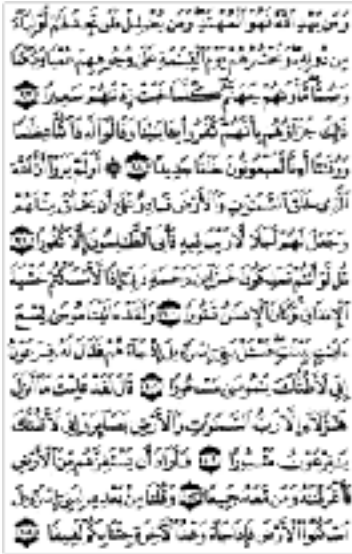 وَمَن يَهْدِ ٱللَّهُ فَهُوَ ٱلْمُهْتَدِ وَمَن يُضْلِلْ فَلَن تَجِدَ لَهُمْ أَوْلِيَآءَ
مِن دُونِهِۦ وَنَحْشُرُهُمْ يَوْمَ ٱلْقِيَٰمَةِ عَلَىٰ وُجُوهِهِمْ عُمْيًا وَبُكْمًا
وَصُمًّا مَّأْوَىٰهُمْ جَهَنَّمُ كُلَّمَا خَبَتْ زِدْنَٰهُمْ سَعِيرًا ٩٧
ذَٰلِكَ جَزَآؤُهُم بِأَنَّهُمْ كَفَرُوا۟ بِـَٔايَٰتِنَا وَقَالُوٓا۟ أَءِذَا كُنَّا عِظَٰمًا
وَرُفَٰتًا أَءِنَّا لَمَبْعُوثُونَ خَلْقًا جَدِيدًا ٩٨ ۞ أَوَلَمْ يَرَوْا۟ أَنَّ ٱللَّهَ
ٱلَّذِى خَلَقَ ٱلسَّمَٰوَٰتِ وَٱلْأَرْضَ قَادِرٌ عَلَىٰٓ أَن يَخْلُقَ مِثْلَهُمْ
وَجَعَلَ لَهُمْ أَجَلًا لَّا رَيْبَ فِيهِ فَأَبَى ٱلظَّٰلِمُونَ إِلَّا كُفُورًا ٩٩
قُل لَّوْ أَنتُمْ تَمْلِكُونَ خَزَآئِنَ رَحْمَةِ رَبِّىٓ إِذًا لَّأَمْسَكْتُمْ خَشْيَةَ
ٱلْإِنفَاقِ وَكَانَ ٱلْإِنسَٰنُ قَتُورًا ١٠٠ وَلَقَدْ ءَاتَيْنَا مُوسَىٰ تِسْعَ
ءَايَٰتٍۭ بَيِّنَٰتٍ فَسْـَٔلْ بَنِىٓ إِسْرَٰٓءِيلَ إِذْ جَآءَهُمْ فَقَالَ لَهُۥ فِرْعَوْنُ
إِنِّى لَأَظُنُّكَ يَٰمُوسَىٰ مَسْحُورًا ١٠١ قَالَ لَقَدْ عَلِمْتَ مَآ أَنزَلَ
هَٰٓؤُلَآءِ إِلَّا رَبُّ ٱلسَّمَٰوَٰتِ وَٱلْأَرْضِ بَصَآئِرَ وَإِنِّى لَأَظُنُّكَ
يَٰفِرْعَوْنُ مَثْبُورًا ١٠٢ فَأَرَادَ أَن يَسْتَفِزَّهُم مِّنَ ٱلْأَرْضِ
فَأَغْرَقْنَٰهُ وَمَن مَّعَهُۥ جَمِيعًا ١٠٣ وَقُلْنَا مِنۢ بَعْدِهِۦ لِبَنِىٓ إِسْرَٰٓءِيلَ
ٱسْكُنُوا۟ ٱلْأَرْضَ فَإِذَا جَآءَ وَعْدُ ٱلْءَاخِرَةِ جِئْنَا بِكُمْ لَفِيفًا ١٠٤